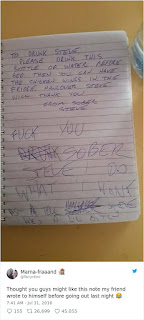 TO DRUNK STEVE
PLEASE DRINK THIS
BOTTLE OF WATER BEFORE
BED THEN YOU CAN HAVE
THE CHICKEN WINGS IN THE
FRIDGE. HANGOVER STEVE
WILL THANK YOU
FROM SOBER
STEVE
FUCK YOU
DRUNK SOBER
STEVE I DO
WHAT I
Mama-fraaand
Thought you guys might like this note my friend
wrote to himself before going out last night 😂
7:41 AM - Jul 31, 2016
155 26,699 45,853